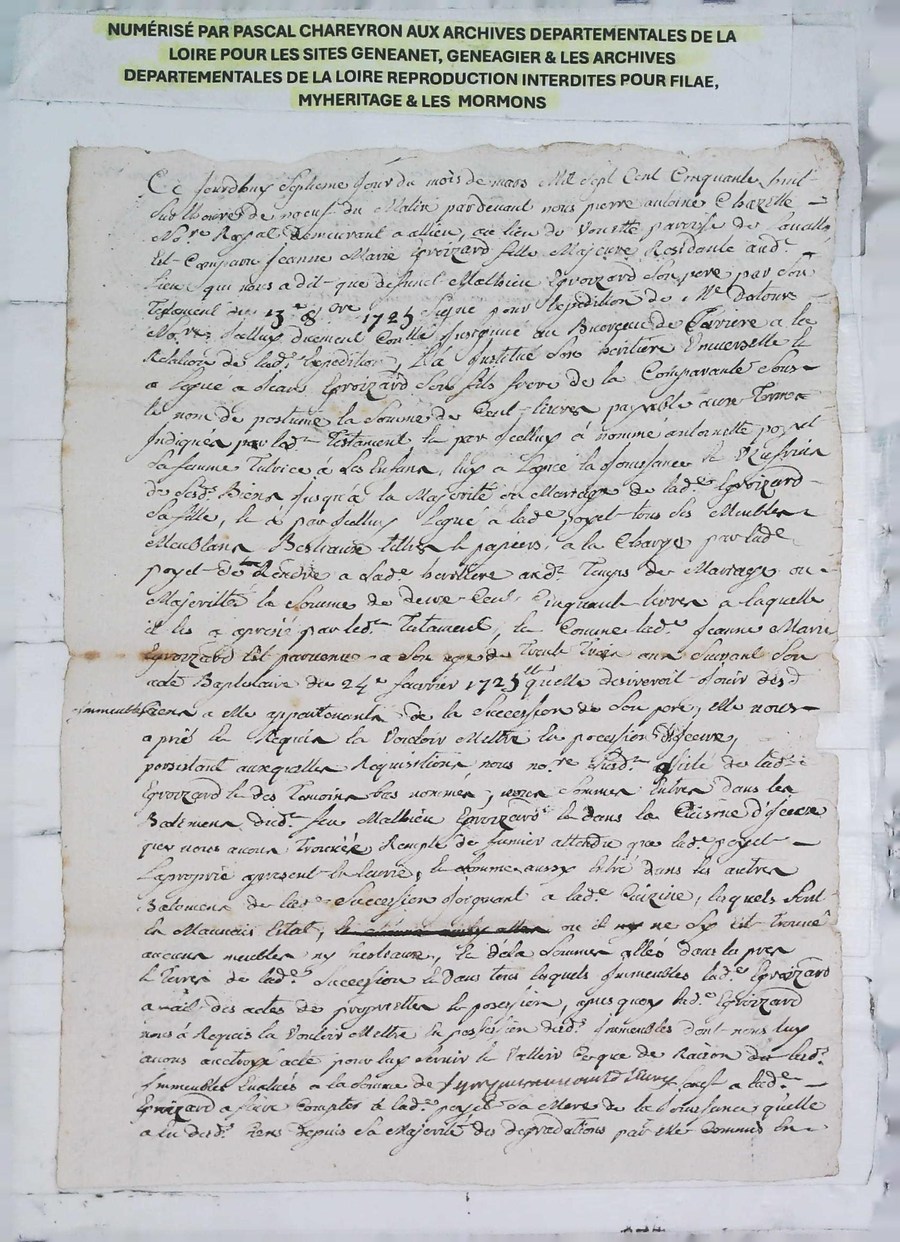 NUMÉRISÉ PAR PASCAL CHAREYRON AUX ARCHIVES DEPARTEMENTALES DE LA
LOIRE POUR LES SITES GENEANET, GENEAGIER & LES ARCHIVES
DEPARTEMENTALES DE LA LOIRE REPRODUCTION INTERDITES POUR FILAE,
MYHERITAGE & LES MORMONS
Ce jourdhuy septieme jour du mois de mars Mil sept Cent Cinquante huit
sur l'heure de noeuf du Matin pardevant nous pierre antoine Chazette
No.re Royal demeurant a au lieu de parroisse de
Est Comparu jeanne Marie Epvoizard fille Majeure Residante aud.t
lieu qui nous a dit que defunct Mathieu Epvoizard son pere par son
Testament du 13.e 8.bre 1725 signe pour Expedition de M.e
No.re Icelluy duement Conllé au Bureau de a la
Relation de lad.e Expedition, l'a jnstitué son heritiere Universelle Et
a Legué a jean Epvoizard son fils frere de la Comparante sous
le nom de postume la somme de Cent livres payable aux Termes
jndiqués par led.t Testament Et par Icelluy a nommé antoinette poyet
sa femme Tutrice a ses Enfans, luy a Legué la jouissance Et Uzufruit
de sesd.s Biens jusqu'a la Majorité ou Mariage de lad.e Epvoizard
sa fille, Et a par Icelluy Legué a lad.e poyet tous ses Meubles
Meublans Bestiaux tittres Et papiers, a la Charge par lad.e
poyet de Rendre a sad.e heritiere aud.t Temps de Mariage ou
Majorité la somme de deux Cent Cinquante livres a laquelle
il les a aprecié par led.t Testament, Et Comme lad.e jeanne Marie
Epvoizard Est parvenue a son age de Trente Trois ans suivant son
acte Baptistaire du 24.e janvier 1725 quelle desireroit jouir desd.
immeubles Biens a elle appartenants de la succession de son pere, elle nous
a prié Et Requis la Vouloir Mettre En possession d'iceux,
persistant auxquelles Requisitions nous no.re susd.t assisté de lad.e
Epvoizard Et des Temoins bas nommés, nous sommes Entrés dans les
Batimens dud.t feu Mathieu Epvoizard Et dans la Cuisine d'iceux
que nous avons Trouvée Remplie de fumier attendu que lad.e poyet
apresent Et sommes aussy Entré dans les autres
Batimens de lad.e succession joignant a lad.e Cuizine, lesquels sont
En Mauvais Etat, ou il ne s'y Est Trouvé
aucuns meubles ny bestiaux, Et de la sommes allés dans les pres
Et Terres de lad.e succession Et dans tous lesquels jmmeubles lad.e Epvoizard
a fait des actes de proprietter Et possession, apres quoy lad.e Epvoizard
nous a Requis la Vouloir Mettre En possession desd.s jmmeubles dont nous luy
avons acte pour luy servir Et Valloir Ce que de Raison Et lesd.s
jmmeubles Evalués a la somme de sauf a lad.e
Epvoizard a faire Compter a lad.e poyet sa Mere de la jouissance quelle
a eu desd.s Biens depuis sa Majorité des degradations par elle Commis En